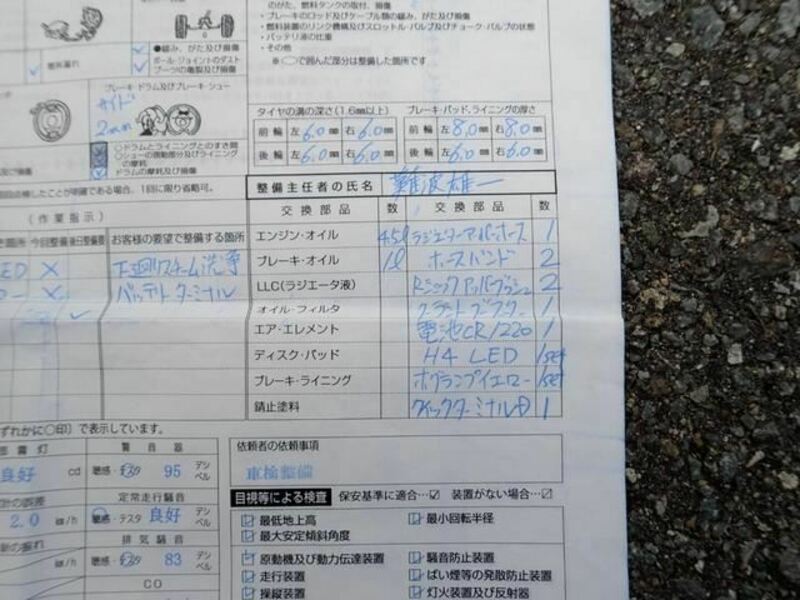 のがた、燃料タンクの取付、損傷
・ブレーキのロッド及びケーブル類の緩み、がた及び損傷
・燃料装置のリンク機構及びスロットル・バルブ及びチョーク・バルブの状態
・バッテリ液の比重
・その他
※○で囲んだ部分は整備した箇所です
●緩み、がた及び損傷
ボール・ジョイントのダスト
ブーツの亀裂及び損傷
ブレーキ・ドラム及びブレーキ・シュー
サイド
2mm
○ドラムとライニングとのすき間
○シューの摺動部分及びライニング
の摩耗
ドラムの摩耗及び損傷
タイヤの溝の深さ(1.6mm以上)
前輪 左 6.0 mm 右 6.0 mm
後輪 左 6.0 mm 右 6.0 mm
ブレーキ・パッド、ライニングの厚さ
前輪 左 8.0 mm 右 8.0 mm
後輪 左 6.0 mm 右 6.0 mm
点検したことが明確である場合、1回に限り省略可。
整備主任者の氏名 難波雄一
(作業指示)
箇所 今回整備 後日整備要 お客様の要望で整備する箇所
ED × 下廻りスチーム洗浄
× バッテリターミナル
交換部品 数 交換部品 数
エンジン・オイル 4.5l ラジエーターアッパーホース 1
ブレーキ・オイル 1l ホースバンド 2
LLC(ラジエータ液) 2
オイル・フィルタ 1
エア・エレメント 電池CR1220 1
ディスク・パッド H4 LED 1set
ブレーキ・ライニング フォグランプイエロー 1set
錆止塗料 1
ずれかに○印)で表示しています。
備灯 警音器
良好 cd 聴感・テスタ 95 デシベル
計の誤差 定常走行騒音
2.0 km/h 聴感・テスタ 良好 デシベル
の振れ 排気騒音
km/h 聴感・テスタ 83 デシベル
CO
依頼者の依頼事項
車検整備
目視等による検査 保安基準に適合…☑ 装置がない場合…☑
最低地上高 最小回転半径
最大安定傾斜角度
原動機及び動力伝達装置 騒音防止装置
走行装置 ばい煙等の発散防止装置
操縦装置 灯火装置及び反射器